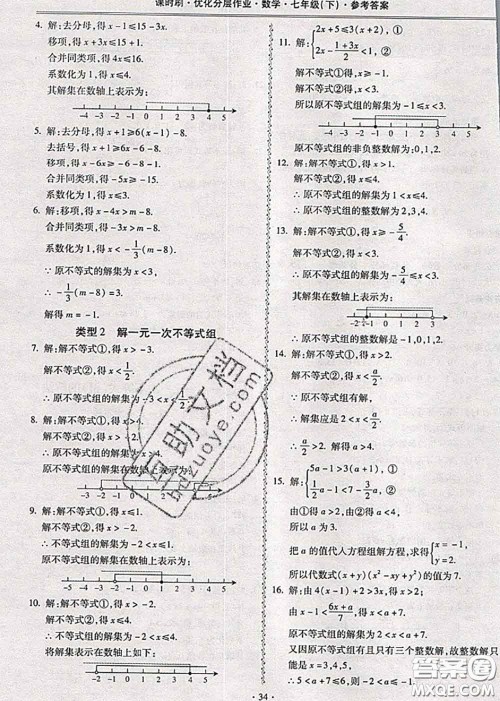 课时刻·优化分层作业·数学·七年级(下)·参考答案
4. 解:去分母,得 x≤3(5-x)-3.
移项,得 x+3x≤15+1.
合并同类项,得 4x≤16.
系数化为1,得 x≤4.
其解集在数轴上表示为:
-3 -2 -1 0 1 2 3 4 5
5. 解:去分母,得 x+1≥6(x-1)-8.
去括号,得 x+1≥6x-6-8.
移项,得 x-6x≥-6-8-1.
合并同类项,得 -5x≥-15.
系数化为1,得 x≤3.
6. 解:移项,得 x-4x>m-8.
合并同类项,得 -3x>m-8.
系数化为1,得 x<-1/3(m-8).
∵ 原不等式的解集为 x<3,
∴ -1/3(m-8)=3.
解得 m=-1.
类型2 解一元一次不等式组
7. 解:解不等式①,得 x>-3.
解不等式②,得 x<1/2.
∴ 原不等式组的解集为 -3<x<1/2.
8. 解:解不等式①,得 x>4.
解不等式②,得 x>
∴ 原不等式组的解集为 x>4.
原不等式组的解集在数轴上表示为:
-4 -3 -2 -1 0 1 2 3 4 5
9. 解:解不等式①,得 x<0.
解不等式②,得 x>-2.
∴ 原不等式组的解集为 -2<x<0.
解集在数轴上表示为:
-4 -3 -2 -1 0 1 2 3 4
10. 解:解不等式①,得 x>-2.
解不等式②,得 x≤4.
∴ 原不等式组的解集为 -2<x≤4.
将解集表示在数轴上如下:
-4 -3 -2 -1 0 1 2 3 4 5
11. 解:{2x+5≤3(x+2)①,
2x-(1+3x)/2<1②.
解不等式①,得 x≥-1.
解不等式②,得 x<3.
所以原不等式组的解集为 -1≤x<3.
-4 -3 -2 -1 0 1 2 3 4 5
原不等式组的非负整数解为:0,1,2.
12. 解:解不等式①,得 x>1.
解不等式②,得 x≤4.
∴ 原不等式组的解集为 1<x≤4.
∴ 原不等式组的整数解为 2,3,4.
13. 解:解不等式①,得 x≤4.
解不等式②,得 x>-5/4.
∴ 原不等式组的解集为 -5/4<x≤4.
解集在数轴上表示为:
∴ 原不等式组的整数解是 -1,0,1,2,3,4.
14. 解:解不等式①,得 x>2.
解不等式②,得 x<a/2.
∵ 不等式组有解,
∴ 解集应是 2<x<a/2.
∴ 2<a/2.
解得 a>4.
15. 解:{5a-1>3(a+1)①,
1/2a-1<7-3/2a②.
由①得 a>2.
由②得 a<4.
所以 a 为3.
把 a 的值代人方程组解方程,得{x=-1,
y=2.
所以代数式(x+y)(x²-xy+y²)的值为7.
16. 解:由①得 x>2.
由②得 x<a+7.
∴ 原不等式组的解集为 2<x<a+7.
又因原不等式组有且只有三个整数解,故整数解只
能是 x=3,4,5.
∴ 5<a+7≤6,则 -2<a≤-1.
· 34 ·
互助文档
bzzuoye.com
答案圈
MXQE.COM